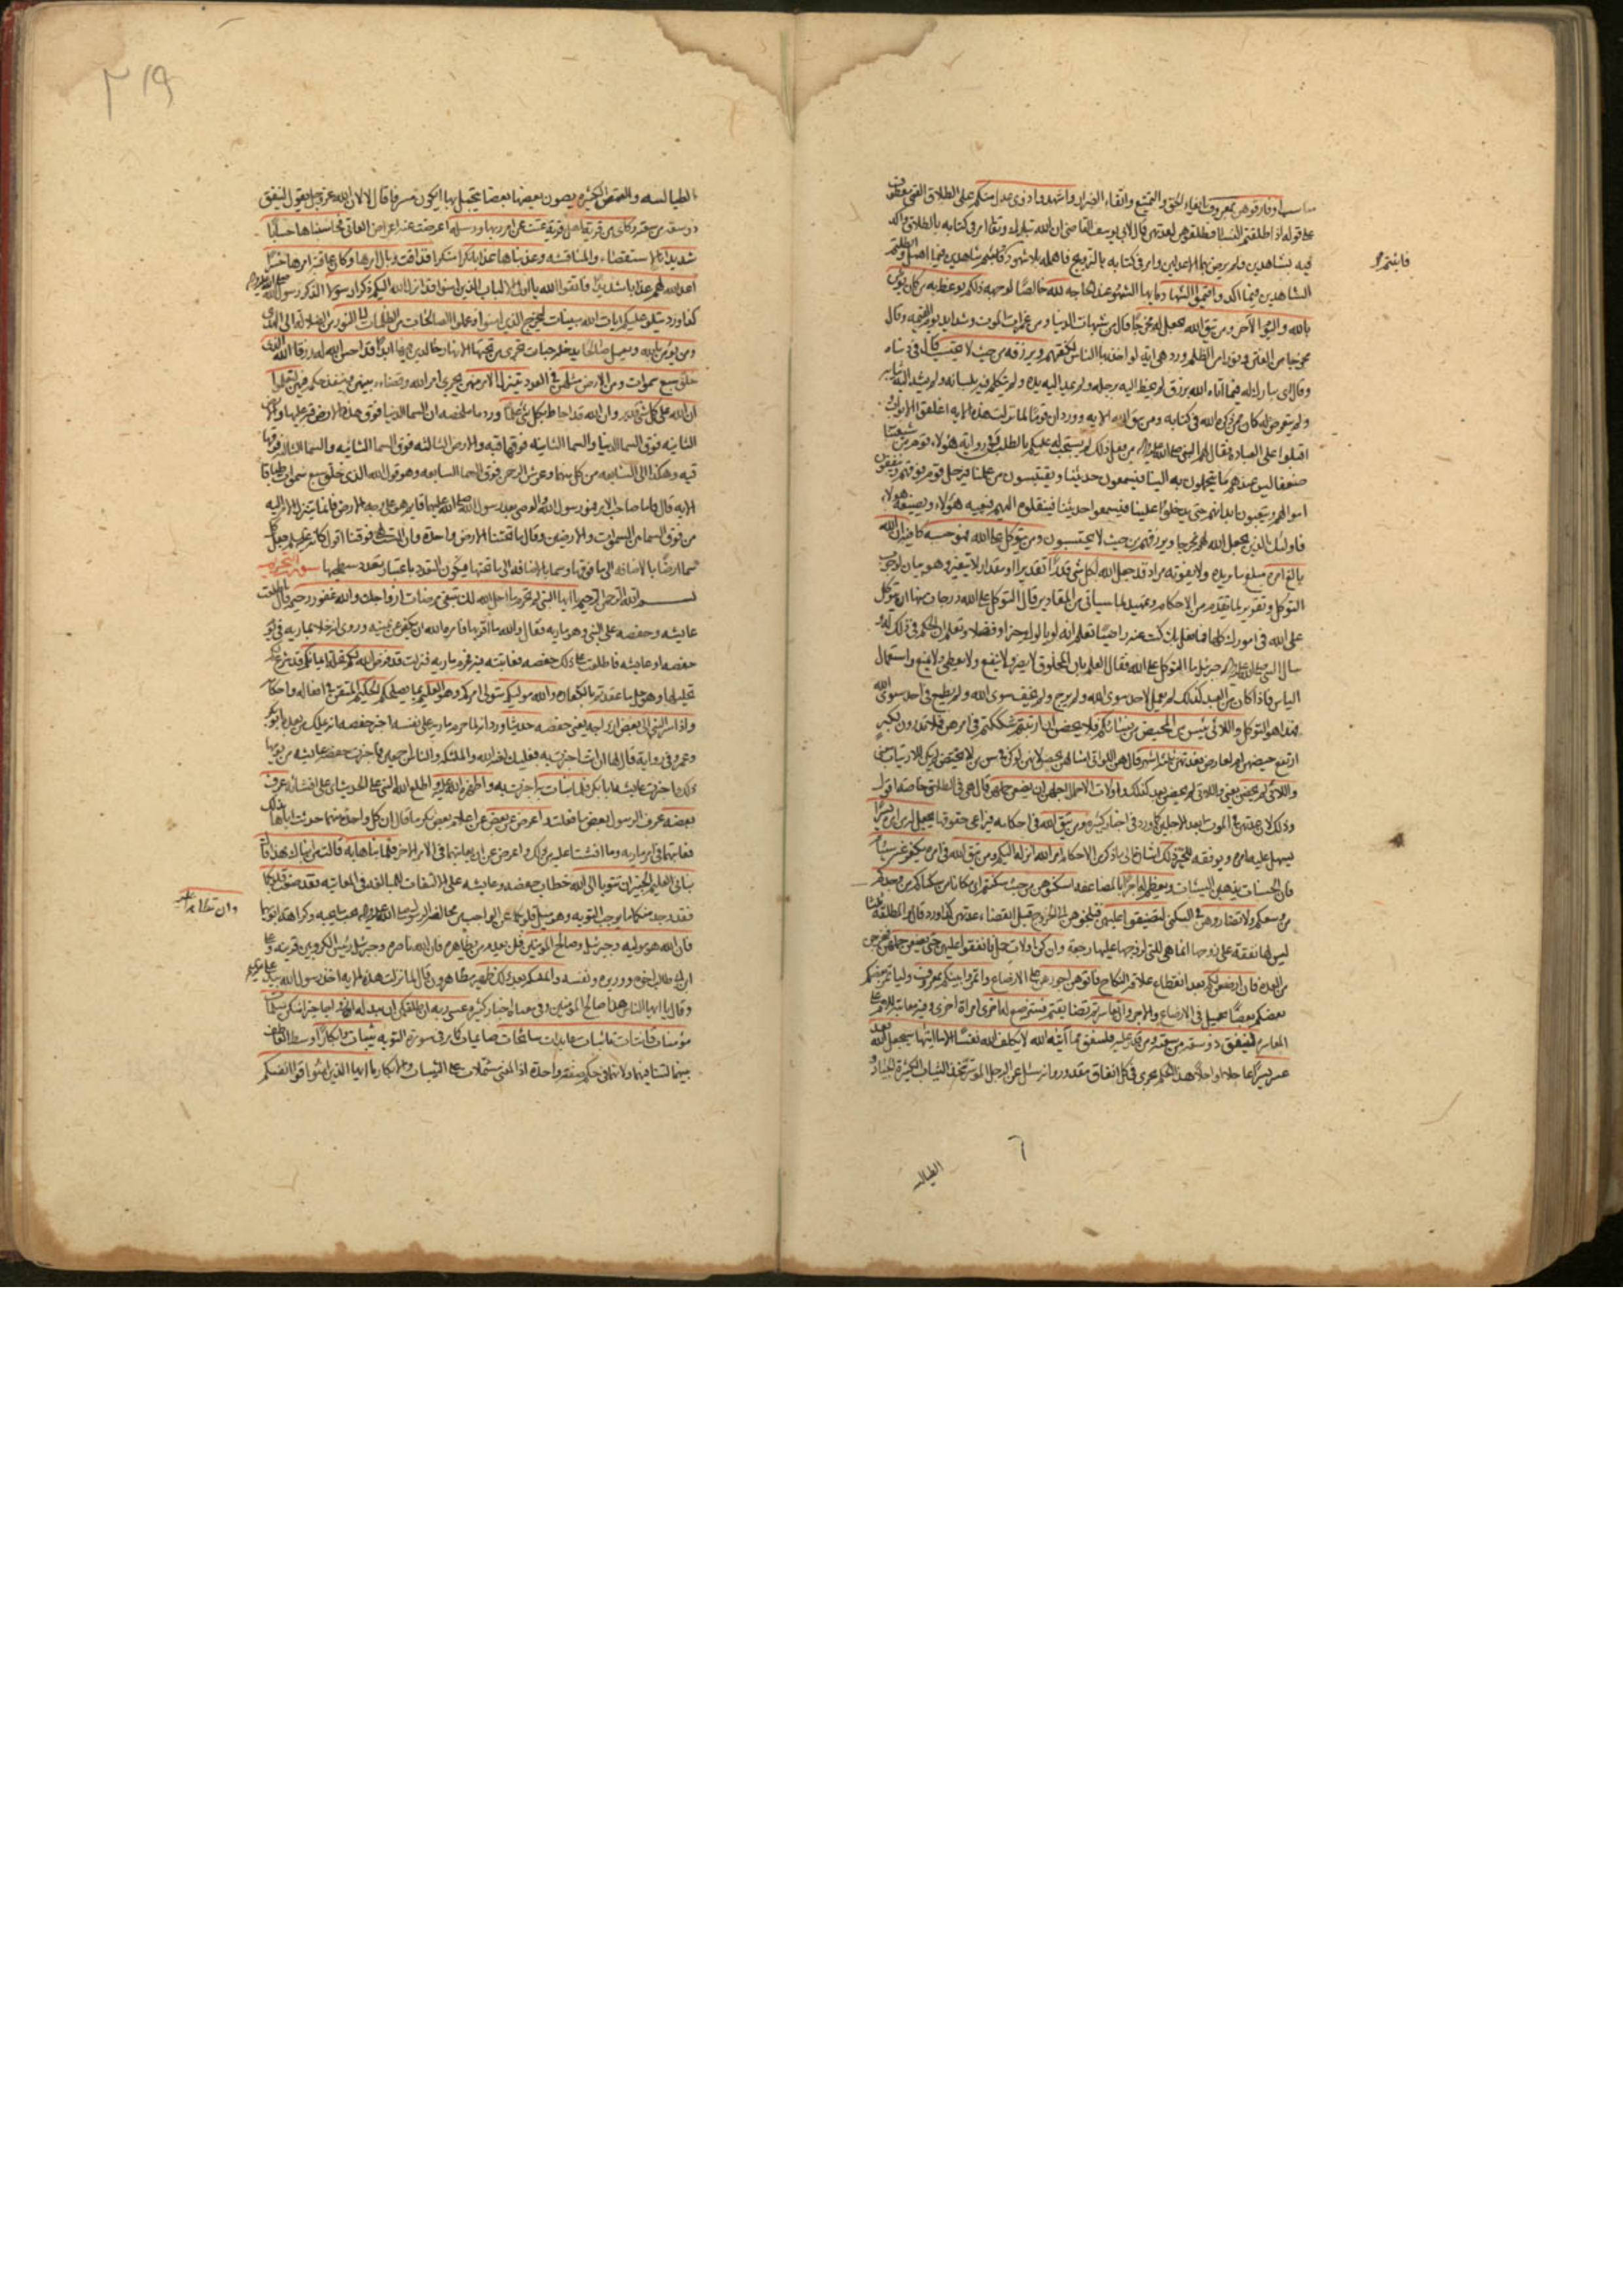 مناسب او فارقوهن بمعروف بايفاء الحق والتمتيع واتقاء الضرار واشهدوا ذوي عدل منكم على الطلاق القمي معطوف
على قوله اذا طلقتم النساء فطلقوهن لعدتهن قال لابي يوسف القاضي ان الله تبارك وتعالى امر في كتابه بالطلاق واكد
فيه بشاهدين ولم يرض بهما الا عدلين وامر في كتابه بالتزويج فاهمله بلا شهود فاثبتم شاهدين فيما اهمل وابطلتم
الشاهدين فيما اكد واقيموا الشهادة ايها الشهود عند الحاجة لله خالصا لوجهه ذلكم يوعظ به من كان يؤمن
بالله واليوم الآخر ومن يتق الله يجعل له مخرجا قال من شبهات الدنيا ومن غمرات الموت وشدايد يوم القيمة وقال
مخرجا من الفتن ونورا من الظلم ورد هي اية لو اخذ بها الناس لكفتهم ويرزقه من حيث لا يحتسب قال في دنياه
وقال اي يبارك له فيما اتاه الله برزق لم يخط اليه برجله ولم يمد اليه يده ولم يتكلم فيه بلسانه ولم يشد اليه ثيابه
ولم يتعرض له كان ممن ذكره الله في كتابه ومن يتق الله الاية وورد ان قوما لما نزلت هذه الاية اغلقوا الابواب
اقبلوا على العبادة فقال لهم النبي صلى الله عليه وآله من فعل ذلك لم يستجب له عليكم بالطلب وفي رواية هؤلاء قوم من شيعتنا
ضعفا ليس عندهم ما يتحملون به الينا فيسمعون حديثنا ويقتبسون من علمنا فيرحل قوم فوقهم وينفقون
اموالهم ويتعبون ابدانهم حتى يدخلوا علينا فيسمعوا حديثنا فينقلوه اليهم فيعيه هؤلاء ويضيعه هؤلاء
فاولئك الذين يجعل الله لهم مخرجا ويرزقهم من حيث لا يحتسبون ومن يتوكل على الله فهو حسبه كافيه ان الله
بالغ امره مبلغ ما يريده ولا يفوته مراد قد جعل الله لكل شيء قدرا تقديرا او مقدارا لا يتغير وهو بيان لوجوب
التوكل وتقرير لما تقدم من الاحكام وتمهيد لما سيأتي من المقادير قال التوكل على الله درجات منها ان تتوكل
على الله في امورك كلها فما فعل بك كنت عنه راضيا تعلم انه لا يألوك خيرا وفضلا وتعلم ان الحكم في ذلك له و
سال النبي صلى الله عليه وآله جبرئيل ما التوكل على الله فقال العلم بان المخلوق لا يضر ولا ينفع ولا يعطي ولا يمنع واستعمال
الياس فاذا كان العبد كذلك لم يعمل لاحد سوى الله ولم يرج ولم يخف سوى الله ولم يطمع في احد سوى الله
فهذا هو التوكل واللائي يئسن من المحيض من نسائكم فلا يحضن ان ارتبتم شككتم في امرهن فلا تدرون لكبر
ارتفع حيضهن ام لعارض فعدتهن ثلثة اشهر قال هن اللواتي امثالهن يحضن لانهن لو كن في سن من لا تحيض لم يكن للارتياب معنى
واللائي لم يحضن يعني واللائي لم يحضن بعد كذلك واولات الاحمال اجلهن ان يضعن حملهن قال هي في الطلاق خاصة اقول
وذلك لان عدتهن في الموت ابعد الاجلين كما ورد في اخبار كثيرة ومن يتق الله في احكامه فيراعي حقوقها يجعل له من امره يسرا
يسهل عليه امره ويوفقه للخير ذلك اشارة الى ما ذكر من الاحكام امر الله انزله اليكم ومن يتق الله في امره يكفر عنه سيئاته
فان الحسنات يذهبن السيئات ويعظم له اجرا بالمضاعفة اسكنوهن من حيث سكنتم اي مكانا من سكناكم من وجدكم
من وسعكم ولا تضاروهن في السكنى لتضيقوا عليهن فتلجؤهن الى الخروج قبل انقضاء عدتهن كذا ورد قال المطلقة ثلثا
ليس لها نفقة على زوجها انما هي للتي لزوجها عليها رجعة وان كن اولات حمل فانفقوا عليهن حتى يضعن حملهن فيخرجن
من العدة فان ارضعن لكم بعد انقطاع علاقة النكاح فاتوهن اجورهن على الارضاع واتمروا بينكم بمعروف وليأمر بعضكم
بعضكم بعضا بجميل في الارضاع والاجر وان تعاسرتم تضايقتم فسترضع له اخرى امراة اخرى وفيه معاتبة للام على
المعاسرة لينفق ذو سعة من سعته ومن قدر عليه رزقه فلينفق مما آتيه الله لا يكلف الله نفسا الا ما اتيها سيجعل الله بعد
عسر يسرا عاجلا او اجلا وهذا الحكم يجري في كل انفاق مقدور وانه سئل عن الرجل الموسر يتخذ الثياب الكثيرة الجياد و
فابثتم
الطيالسه
الطيالسه والقمص الكثيرة يصون بعضها بعضا يتجمل بها ايكون مسرفا قال لا لان الله عز وجل يقول لينفق
ذو سعة من سعته وكاين من قرية اهل قرية عتت عن امر ربها ورسله اعرضت عنه اعراض العاتي فحاسبناها حسابا
شديدا بالاستقصاء والمناقشه وعذبناها عذابا نكرا منكرا فذاقت وبال امرها وكان عاقبة امرها خسرا
اعد الله لهم عذابا شديدا فاتقوا الله يا اولي الالباب الذين امنوا قد انزل الله اليكم ذكرا رسولا الذكر رسول الله صلى الله عليه وآله
كذا ورد يتلو عليكم ايات الله مبينات ليخرج الذين امنوا وعملوا الصالحات من الظلمات الى النور من الضلالة الى الهدى
ومن يؤمن بالله ويعمل صالحا يدخله جنات تجري من تحتها الانهار خالدين فيها ابدا قد احسن الله له رزقا الله الذي
خلق سبع سموات ومن الارض مثلهن في العدد يتنزل الامر بينهن يجري امر الله وقضاءه بينهن وينفذ حكمه فيهن لتعلموا
ان الله على كل شيء قدير وان الله قد احاط بكل شيء علما ورد ما ملخصه ان السما الدنيا فوق هذه الارض قبة عليها والارض
الثانية فوق السما الدنيا والسما الثانية فوقها قبة والارض الثالثة فوق السما الثانية والسما الثالثة فوقها
قبة وهكذا الى السابعة من كل منهما وعرش الرحمن فوق السما السابعة وهو قول الله الذي خلق سبع سموات طباقا
الاية قال فاما صاحب الامر فهو رسول الله والوصي بعد رسول الله صلى الله عليهما قايم هو على وجه الارض فانما يتنزل الامر اليه
من فوق السما من السموات والارضين وقال ما تحتنا الا ارض واحدة وان الست لهي فوقنا اقول كانه عليه السلم جعل كل
سما ارضا بالاضافة الى ما فوقها وسما بالاضافة الى ما تحتها فيكون التعدد باعتبار تعدد سطحها سورة التحريم
بسم الله الرحمن الرحيم يا ايها النبي لم تحرم ما احل الله لك تبتغي مرضات ازواجك والله غفور رحيم قال اطلعت
عايشه وحفصه على النبي وهو مع ماريه فقال والله ما اقربها فامره الله ان يكفر عن يمينه وروي انه خلا بماريه في يوم
حفصه او عايشه فاطلعت على ذلك حفصه فعاتبته فيه فحرم ماريه فنزلت قد فرض الله لكم تحلة ايمانكم قد شرع لكم
تحليلها وهو حل ما عقدته بالكفارة والله موليكم متولي امركم وهو العليم بما يصلحكم الحكيم المتقن في افعاله واحكامه
واذ اسر النبي الى بعض ازواجه يعني حفصه حديثا ورد انه لما حرم ماريه على نفسه اخبر حفصه انه يملك من بعده ابوبكر
وعمر وفي رواية قال لها ان انت اخبرت به فعليك لعنة الله والملئكة والناس اجمعين فاخبرت حفصه عايشه من يومها
ذلك واخبرت عايشه ابا بكر فلما نبات به اخبرت به واظهره الله عليه واطلع الله النبي على الحديث اي على افشائه عرف
بعضه عرف الرسول بعض ما فعلت واعرض عن بعض عن اعلام بعض تكرما قال ان كل واحدة منهما حدثت اباها بذلك
فعاتبهما في امر ماريه وما افشتا عليه من ذلك واعرض عن ان يعاتبهما في الامر الاخر فلما نباها به قالت من انباك هذا قال
نباني العليم الخبير ان تتوبا الى الله خطاب لحفصه وعايشه على الالتفات للمبالغة في المعاتبه فقد صغت قلوبكما
فقد وجد منكما ما يوجب التوبه وهو ميل قلوبكما عن الواجب من مخالصة الرسول صلى الله عليه وآله بحب ما يحبه وكراهة ما يكرهه
فان الله هو موليه وجبرئيل وصالح المؤمنين فلن يعدم من يظاهره فان الله ناصره وجبرئيل رئيس الكروبيين قرينه وعلي
ابن ابي طالب اخوه ووزيره ونفسه والملئكة بعد ذلك ظهير مظاهرون قال لما نزلت هذه الاية اخذ رسول الله بيد علي
وقال يا ايها الناس هذا صالح المؤمنين وفي معناه اخبار كثيرة عسى ربه ان طلقكن ان يبدله ازواجا خيرا منكن مسلمات
مؤمنات قانتات تائبات عابدات سائحات صايمات كما مر في سورة التوبه ثيبات وابكارا وسط العاطف
بينهما لتنافيهما ولانهما في حكم صفة واحدة اذ المعنى مشتملات على الثيبات والابكار يا ايها الذين امنوا قوا انفسكم
وان تظاهرا عليه
٣١٩